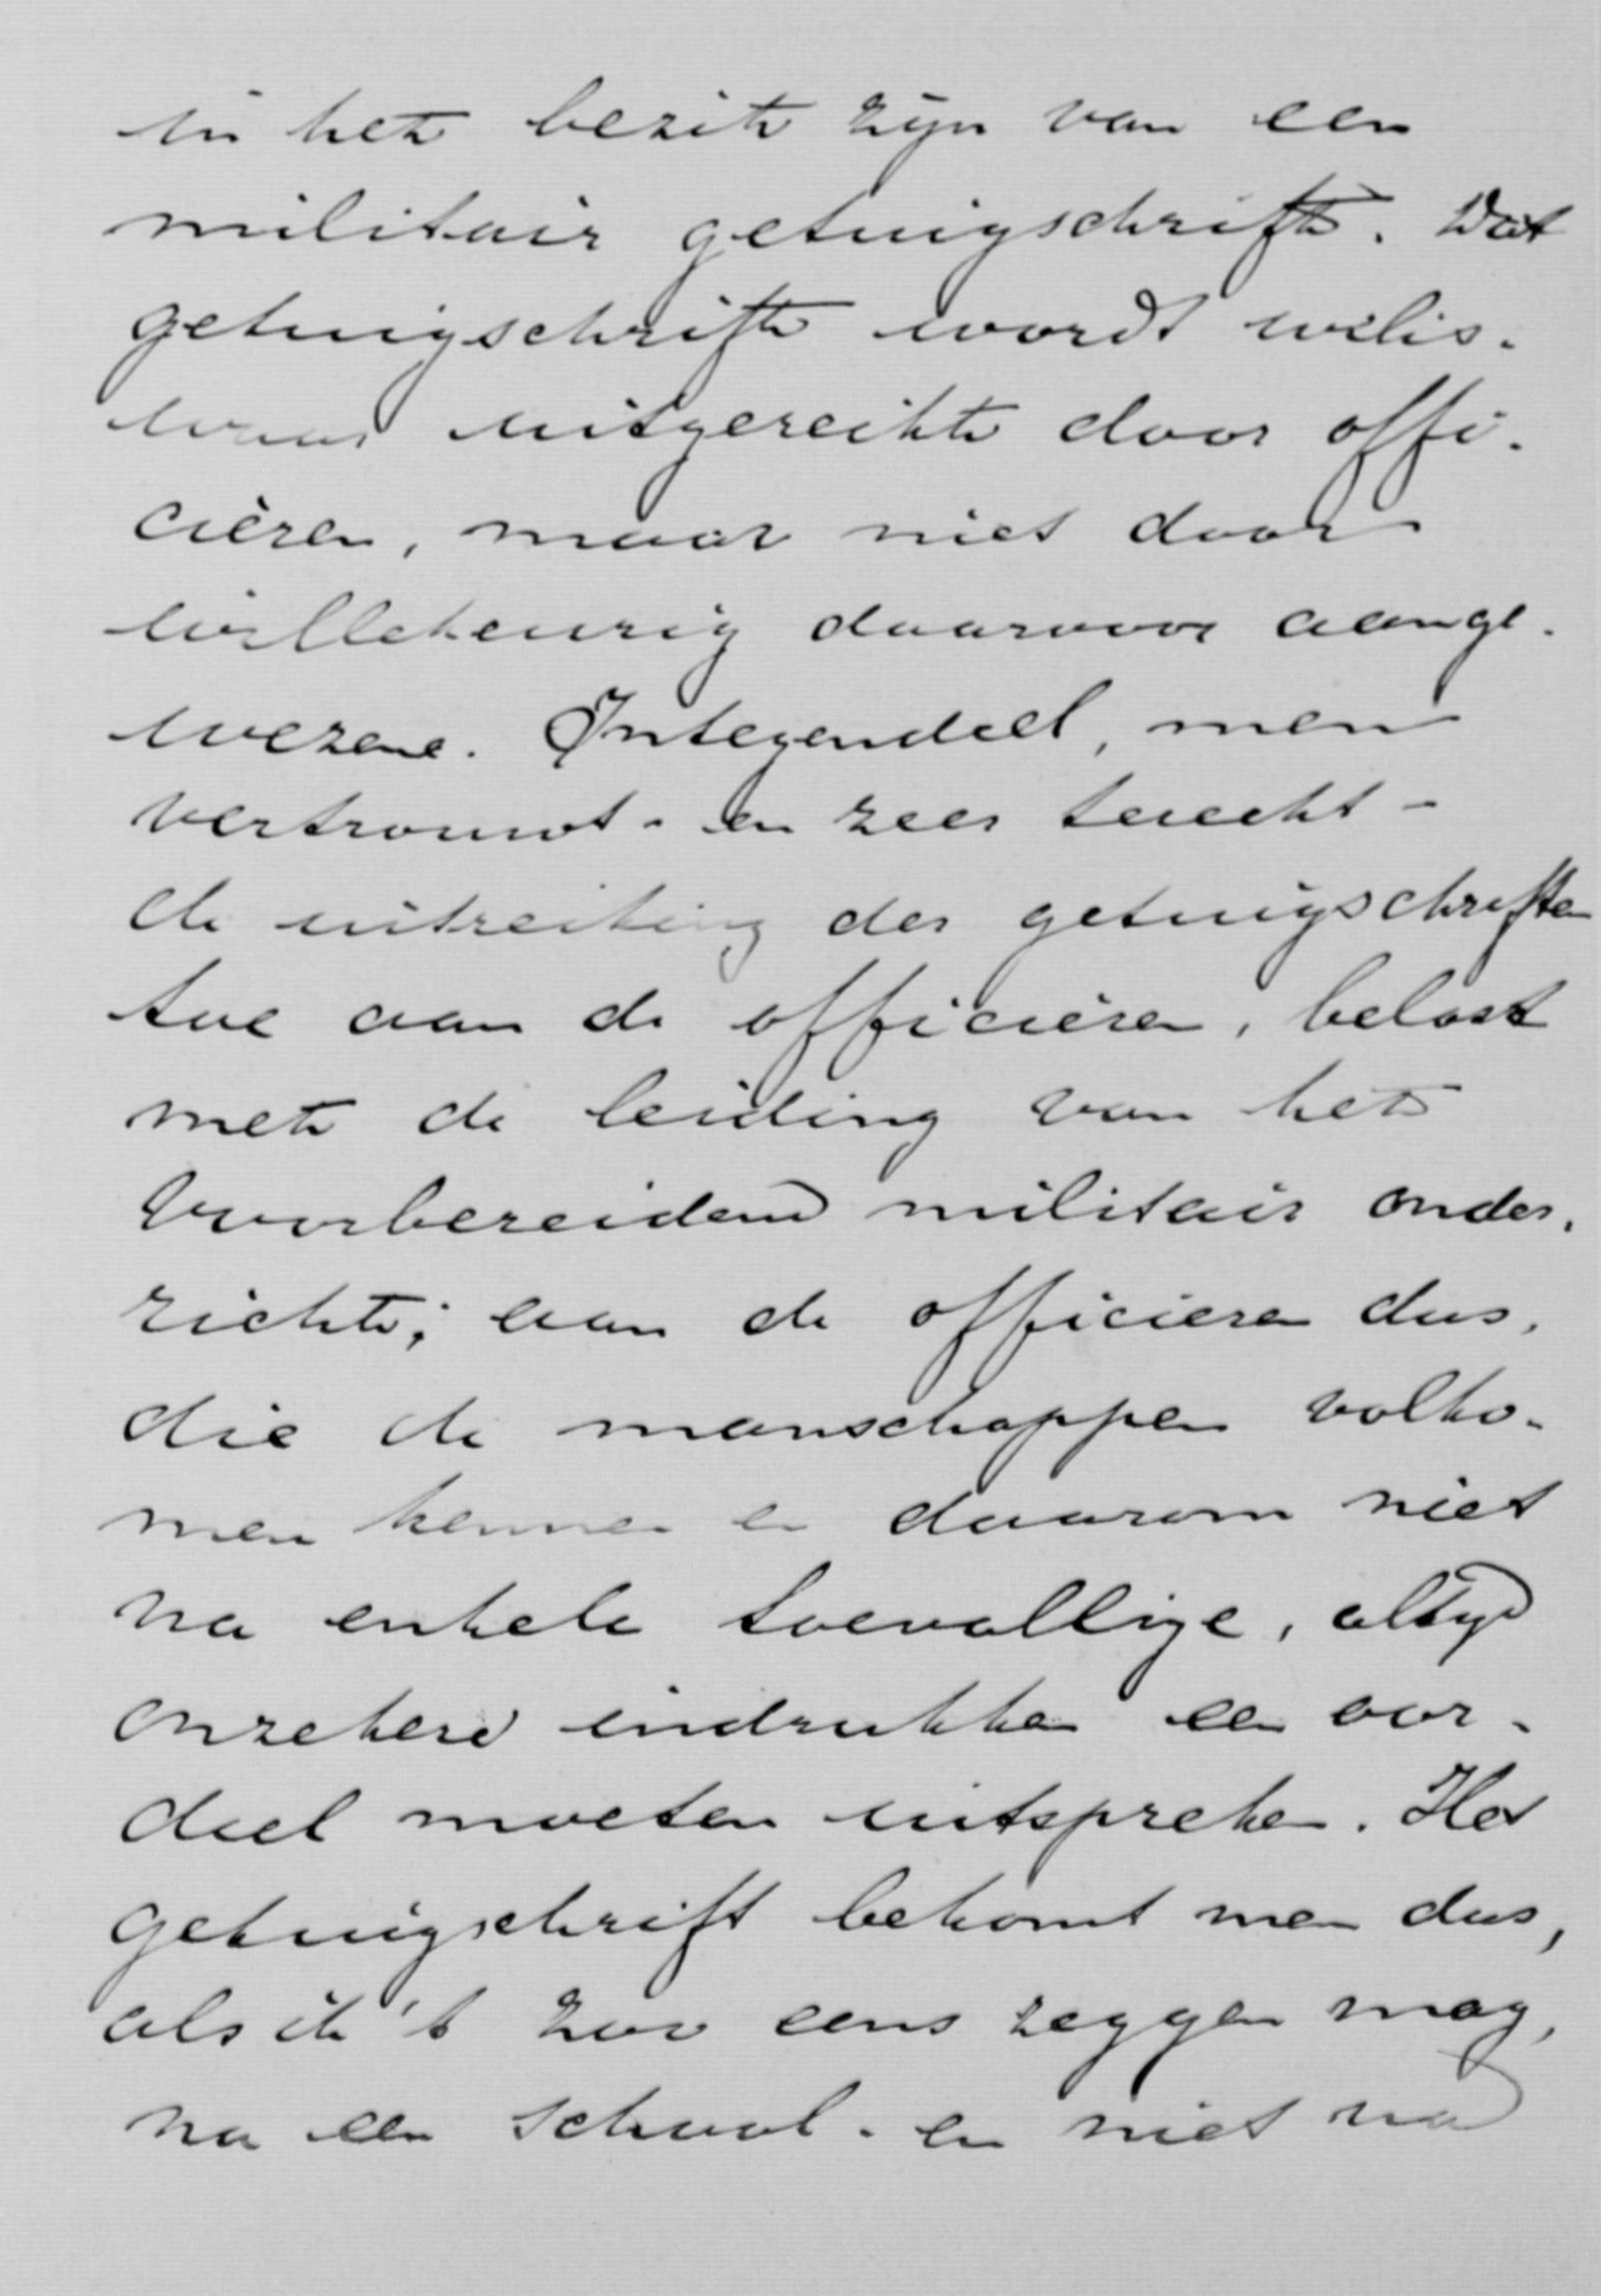 in het bezit zijn van een
militair getuigschrift. Dat
getuigschrift wordt welis-
waar uitgereikt door offi-
cieren, maar niet door
willekeurig daarvoor aange-
wezene. Integendeel, men
vertrouwt - en zeer terecht -
de uitreiking der getuigschriften
toe aan de officieren, belast
met de leiding van het
voorbereidend militair onder-
richt; aan de officieren dus,
die de manschappen volko-
men kennen en daarom niet
na enkele toevallige, altijd
onzekere indrukken een oor-
deel moeten uitspreken. Het
getuigschrift bekomt men dus,
als ik 't zoo eens zeggen mag,
na een school- en niet na